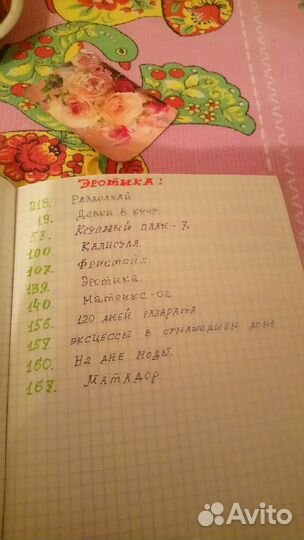 ЭРОТИКА:
215. РАЗДОЛБАЙ
19. ДЕВКИ В КУЧУ.
57. КРУПНЫЙ ПЛАН-7.
100. КАЛИГУЛА.
107. ФРИСТАЙЛ.
139. ЭРОТИКА
140. -02.
156. 120 ДНЕЙ РАЗВРАТА
157. ЭКСЦЕССЫ В СУМАШЕДШЕМ ДОМЕ
160. НА ДНЕ МОДЫ.
167. МАТАДОР.
Avito